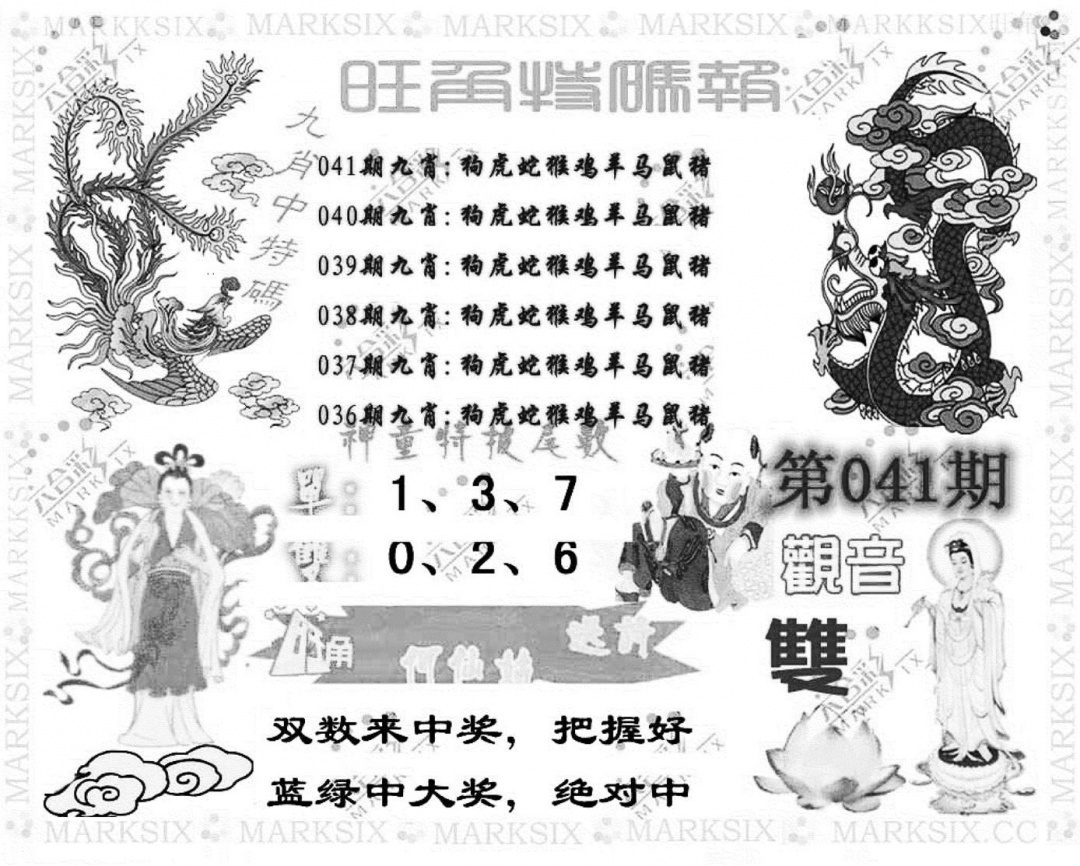 旺角特碼報
九肖中特碼
041期九肖:狗虎蛇猴鸡羊马鼠猪
040期九肖:狗虎蛇猴鸡羊马鼠猪
039期九肖:狗虎蛇猴鸡羊马鼠猪
038期九肖:狗虎蛇猴鸡羊马鼠猪
037期九肖:狗虎蛇猴鸡羊马鼠猪
036期九肖:狗虎蛇猴鸡羊马鼠猪
神童特报尾數
單: 1、3、7
雙: 0、2、6
第041期
觀音
雙
旺角
何仙姑
双数来中奖，把握好
蓝绿中大奖，绝对中
MARKSIX
MARKSIX.CC
六合彩
MARK SIX